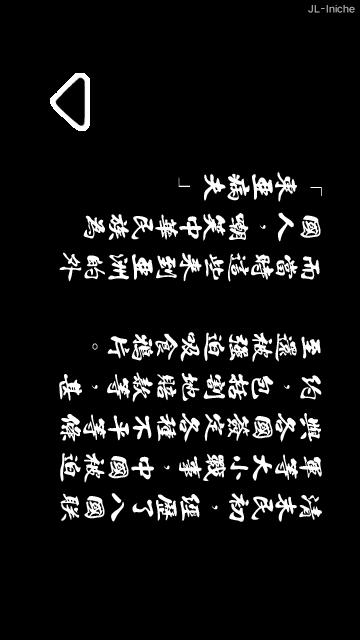 JL-Iniche
清末民初，經歷了八國联
軍等大小戰事，中國被迫
與各國簽定各種不平等條
約，包括割地賠款等，甚
至還被強迫吸食鴉片。
而當時這些來到亞洲的外
國人，嘲笑中華民族為
「東亞病夫」